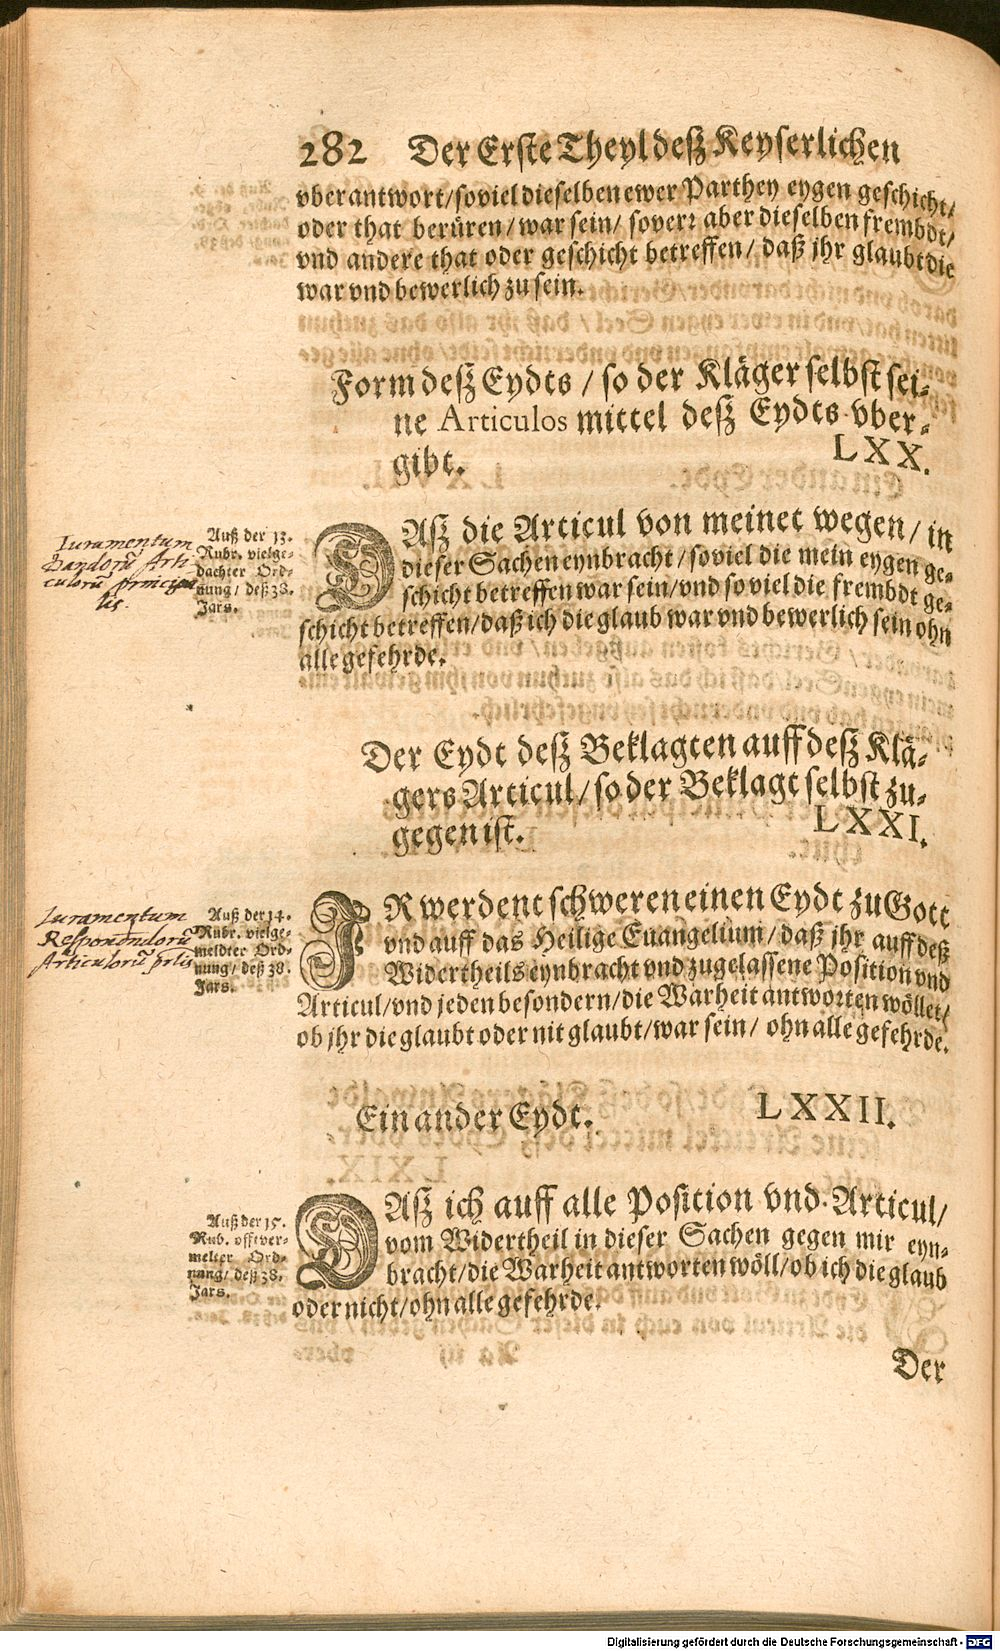 282 Der Erste Theyl deß Keyserlichen
vberantwort/ soviel dieselben ewer Parthey eygen geschicht/
oder that berüren/ war sein/ soverr aber dieselben frembdt/
vnd andere that oder geschicht betreffen/ daß jhr glaubt die
war vnd bewerlich zu sein.
Form deß Eydts / so der Kläger selbst sei-
ne Articulos mittel deß Eydts vber-
gibt. LXX.
Auß der 13.
Rubr. vielge-
dachter Ord-
nung/ deß 38.
Jars.
Iuramentum
Dandorũ Arti
culorũ principa
lis.
DAß die Articul von meinet wegen/ in
dieser Sachen eynbracht/ soviel die mein eygen ge-
schicht betreffen war sein/ vnd so viel die frembdt ge-
schicht betreffen/ daß ich die glaub war vnd bewerlich sein ohn
alle gefehrde.
Der Eydt deß Beklagten auff deß Klä-
gers Articul/ so der Beklagt selbst zu-
gegen ist. LXXI.
Auß der 14.
Rubr. vielge-
meldter Ord-
nung/ deß 38.
Jars.
Iuramentum
Respondendorũ
Articulorũ prlis
IR werdent schweren einen Eydt zu Gott
vnd auff das Heilige Euangelium/ daß jhr auff deß
Widertheils eynbracht vnd zugelassene Position vnd
Articul/ vnd jeden besondern/ die Warheit antworten wöllet/
ob jhr die glaubt oder nit glaubt/ war sein/ ohn alle gefehrde.
Ein ander Eydt. LXXII.
Auß der 15.
Rub. offtver-
melter Ord-
nung/ deß 38.
Jars.
DAß ich auff alle Position vnd Articul/
vom Widertheil in dieser Sachen gegen mir eyn-
bracht/ die Warheit antworten wöll/ ob ich die glaub
oder nicht/ ohn alle gefehrde.
Der
Digitalisierung gefördert durch die Deutsche Forschungsgemeinschaft - DFG